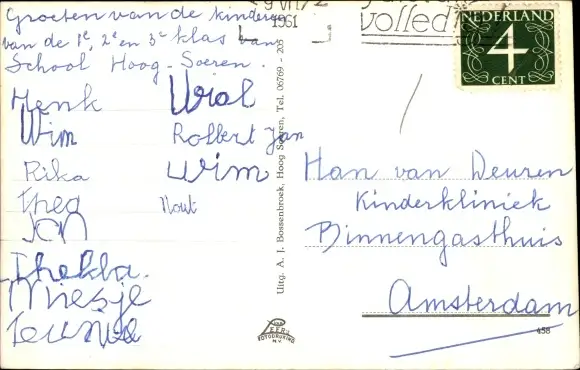 Groeten van de kinderen
van de 1e, 2e en 3e klas van
School Hoog-Soeren.
Henk
Wim
Rika
Theo
Jan
Thekla.
Miesje
Teunie
Robbert Jan
Wim
Wout
Uitg. A. J. Bossenbroek, Hoog Soeren, Tel. 06769 - 203
1961
volled
NEDERLAND
4
CENT
Han van Deuren
Kinderkliniek
Binnengasthuis
Amsterdam
458
FOTODRUKKERIJ
N.V.